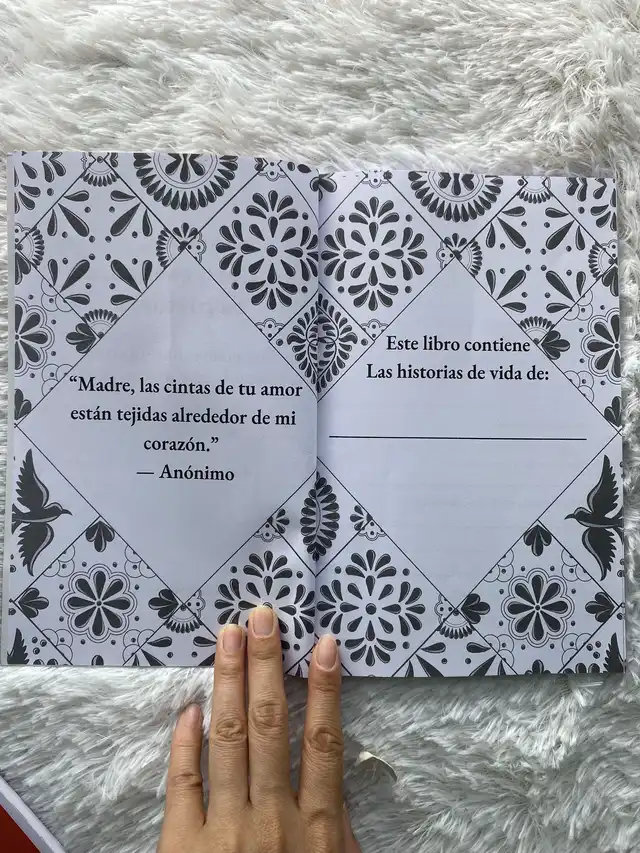 “Madre, las cintas de tu amor
están tejidas alrededor de mi
corazón.”
— Anónimo
Este libro contiene
Las historias de vida de: